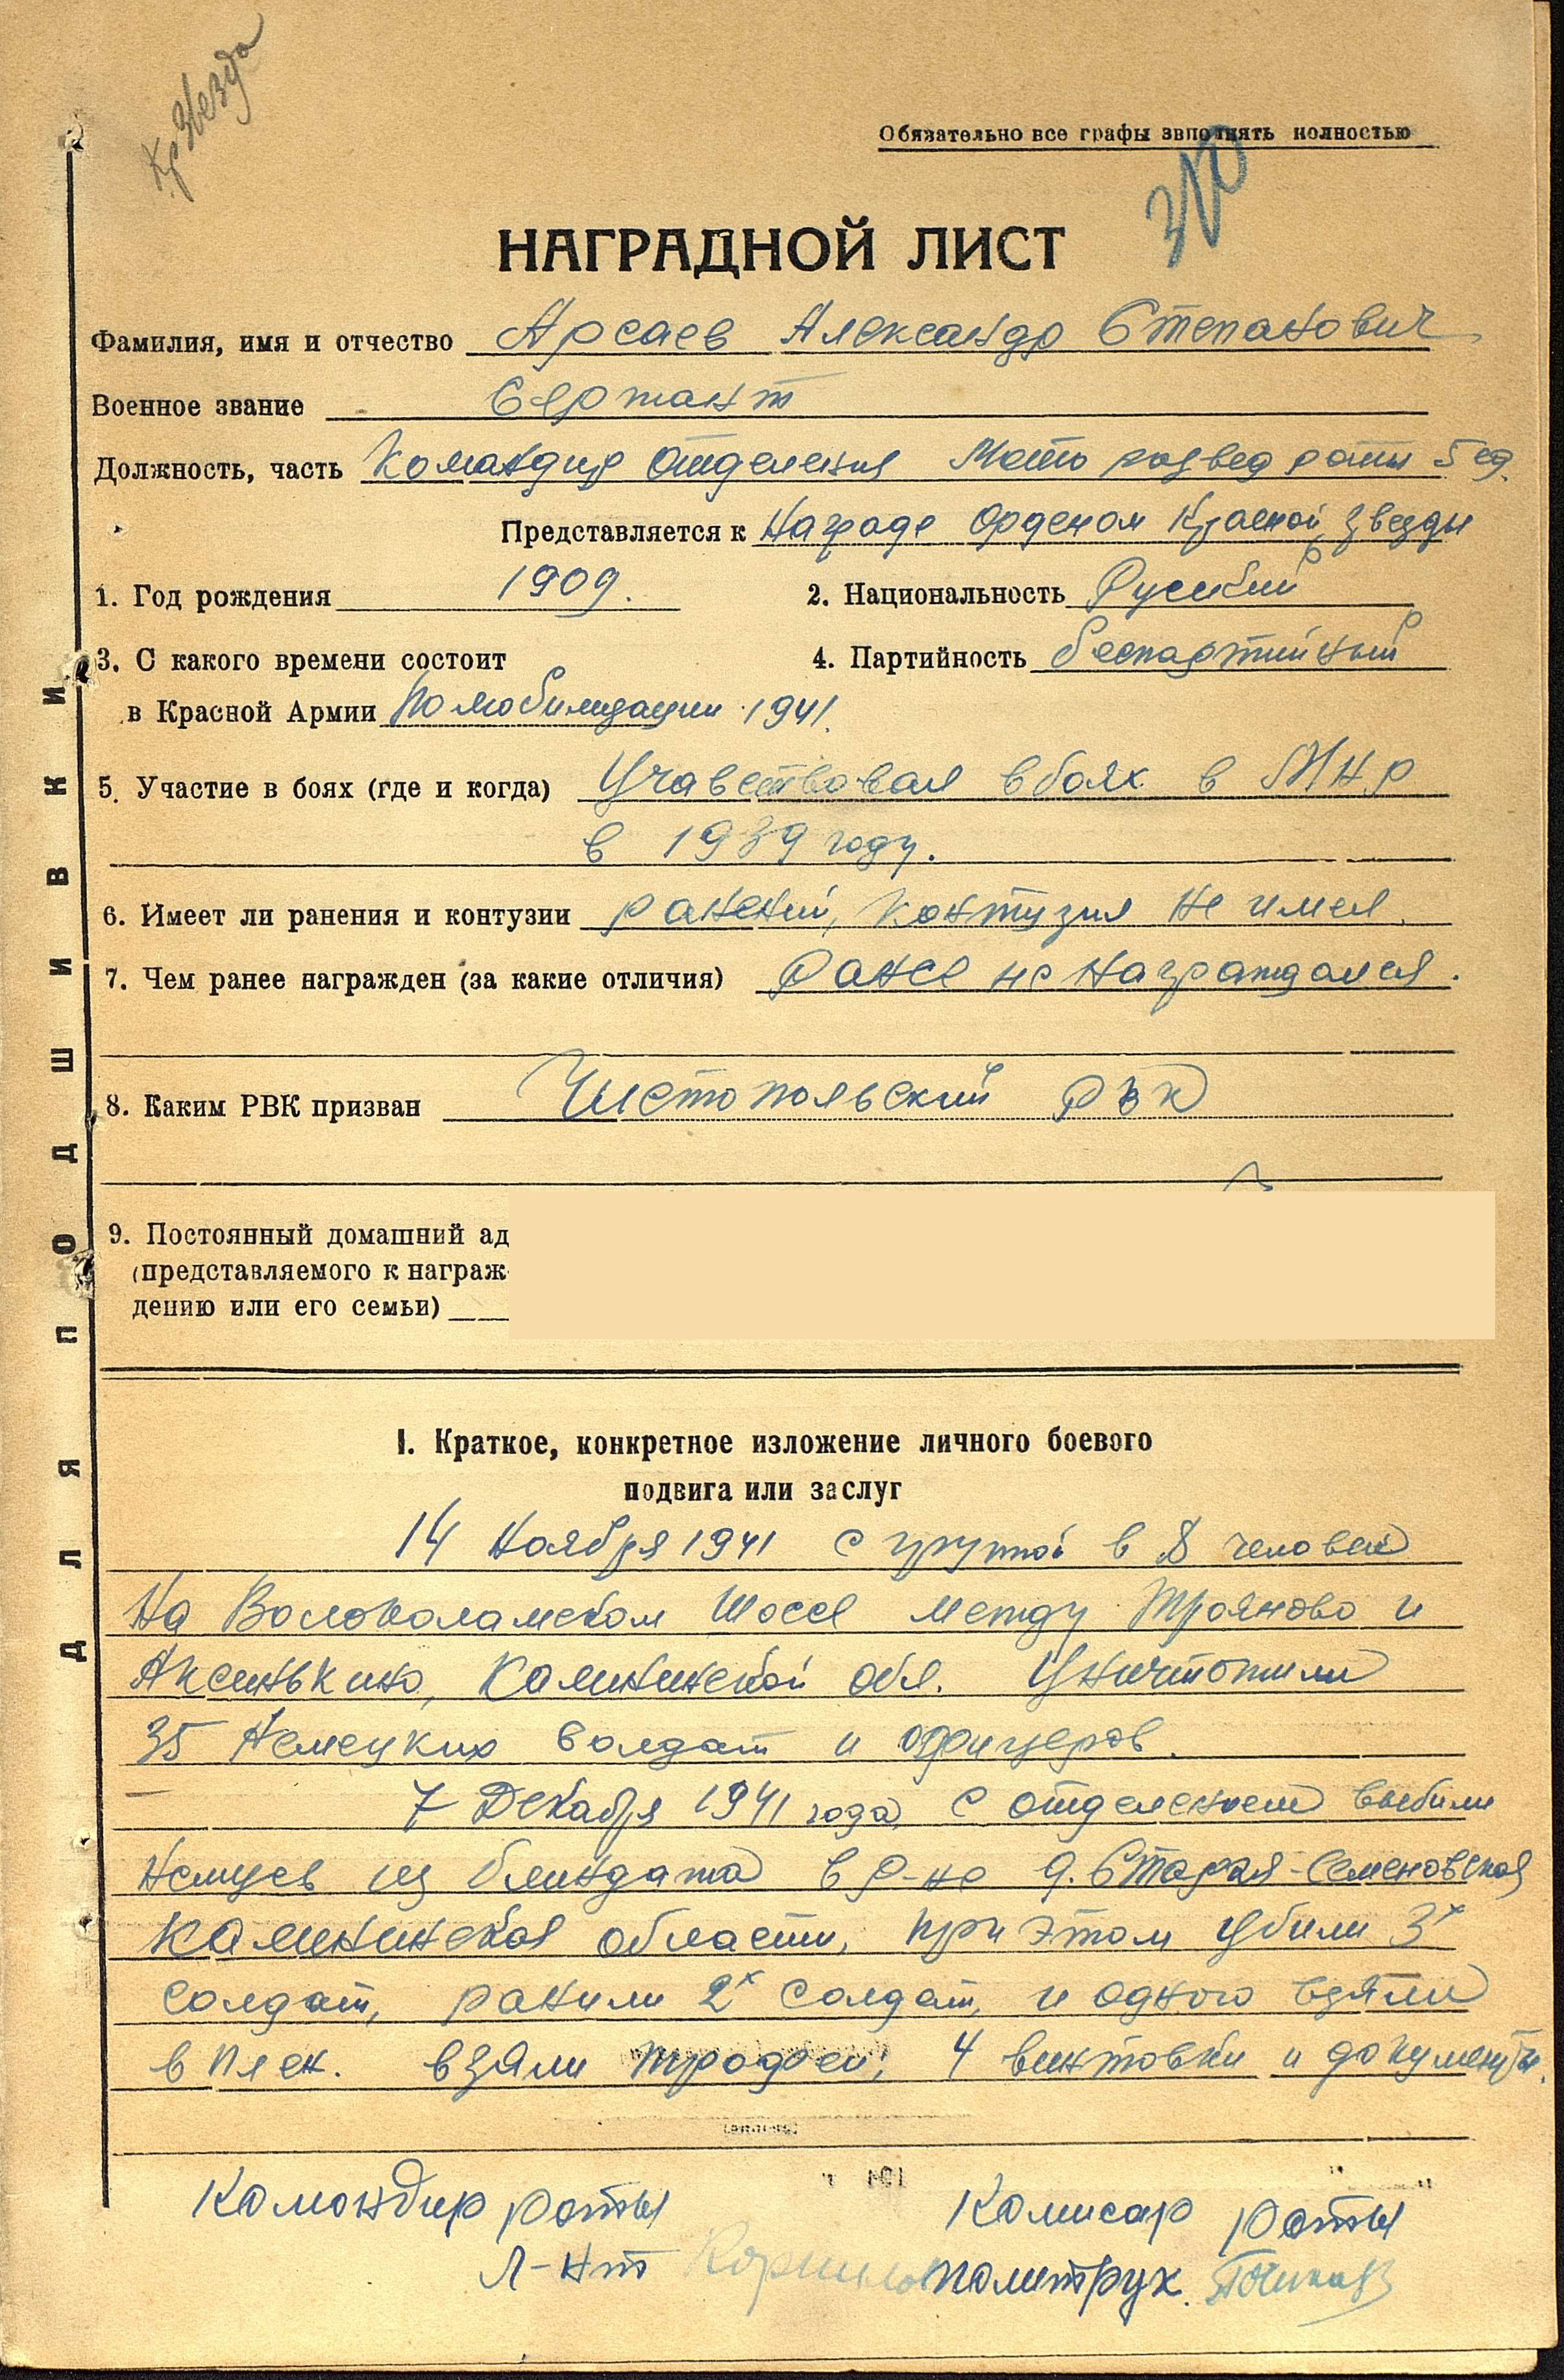 Кр Звезда
Обязательно все графы звполнять полностью
НАГРАДНОЙ ЛИСТ
Фамилия, имя и отчество Арсаев Александр Степанович
Военное звание Сержант
Должность, часть Командир отделения Мото развед роты 5 сд.
Представляется к Награде Орденом Красной Звезды
1. Год рождения 1909. 2. Национальность Русский
3. С какого времени состоит 4. Партийность беспартийный
в Красной Армии По мобилизации 1941.
5. Участие в боях (где и когда) Учавствовал в боях в МНР
в 1939 году.
6. Имеет ли ранения и контузии ранений, контузия не имел.
7. Чем ранее награжден (за какие отличия) Ранее не награждался.
8. Каким РВК призван Чистопольский РВК
9. Постоянный домашний ад
(представляемого к награж-
дению или его семьи)
ДЛЯ ПОДШИВКИ
I. Краткое, конкретное изложение личного боевого
подвига или заслуг
14 Ноября 1941 с группой в 8 человек
На Волоколамском Шоссе между Трояново и
Аксинькино, Калининской обл. Уничтожили
35 Немецких солдат и офицеров.
7 Декабря 1941 года с отделением выбили
Немцев из блиндажа в р-не д. Старая-Семеновская
Калининской области, при этом убили 3х
солдат, ранили 2х солдат, и одного взяли
в плен. взяли трофеи; 4 винтовки и документы.
Командир роты Комисар роты
Л-нт политрук